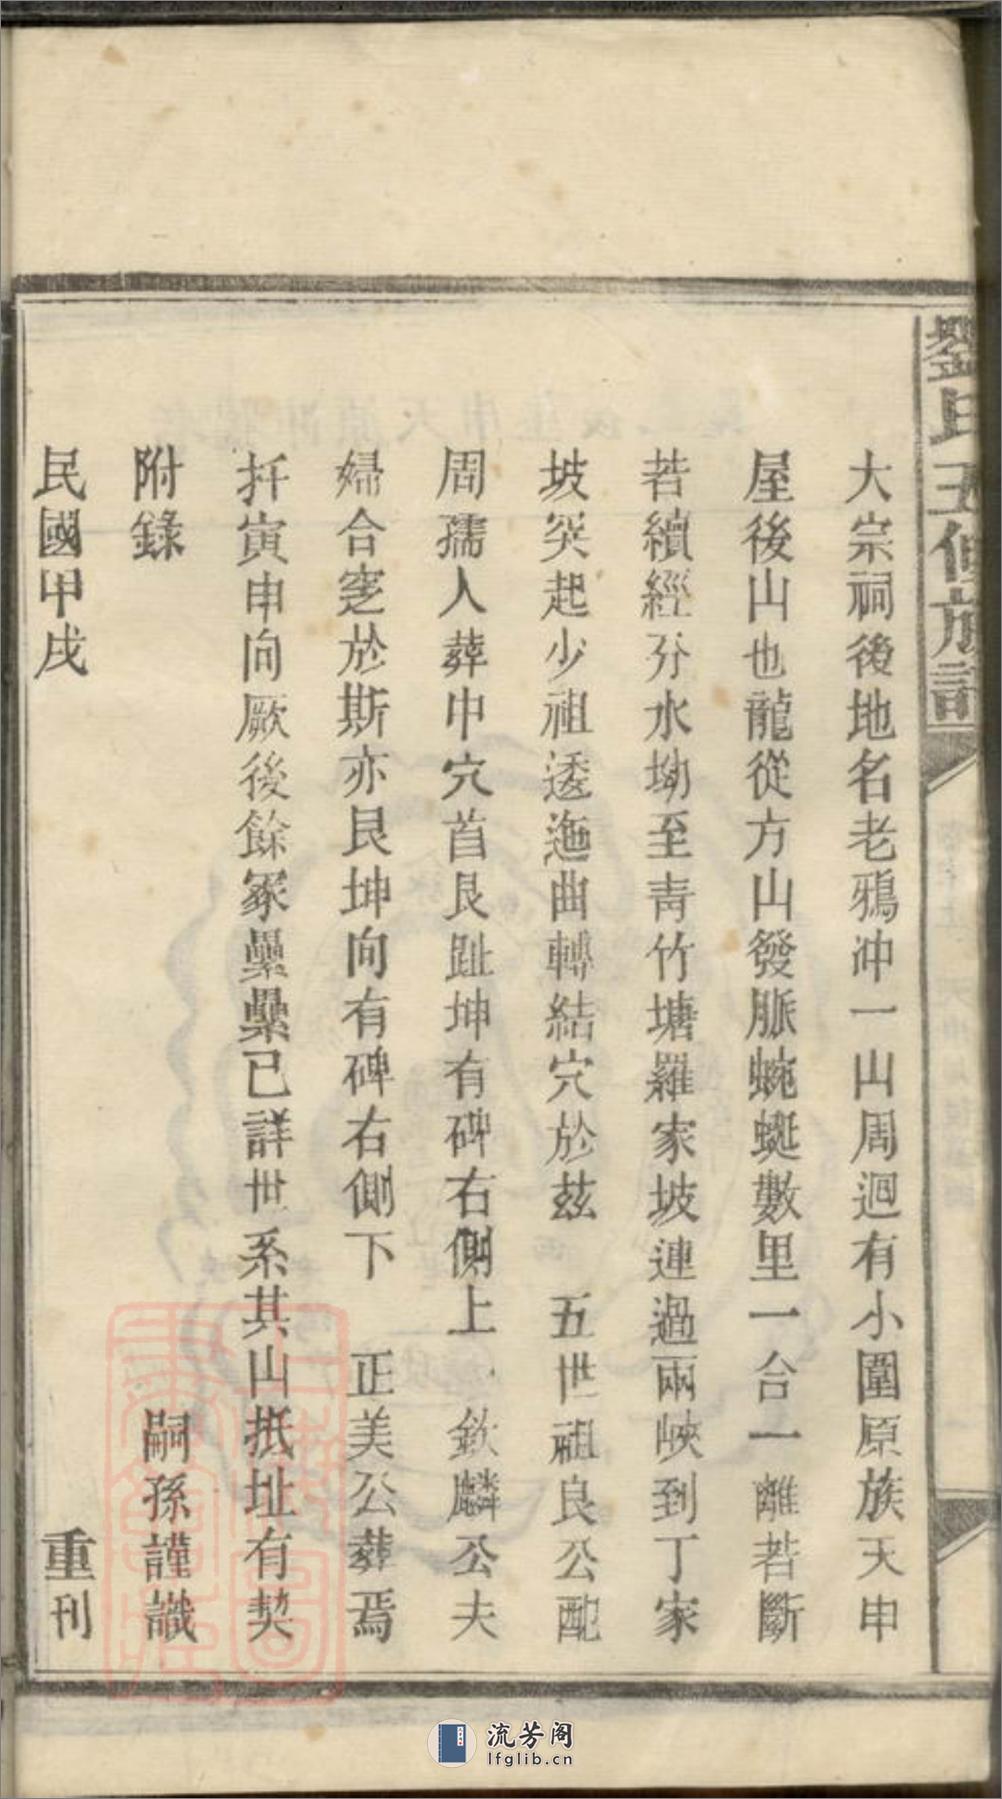 劉氏五修族譜
大宗祠後地名老鴉冲一山周迴有小圍原族天申
屋後山也龍從方山發脈蜿蜒數里一台一離若斷
若續經分水坳至青竹塘羅家坡連過兩峽到丁家
坡突起少祖逶迤曲轉結穴於茲 五世祖良公配
周孺人葬中穴首艮趾坤有碑右側上 欽麟公夫
婦合窆於斯亦艮坤向有碑右側下 正美公葬焉
扦寅申向厥後餘冢纍纍已詳世系其山抵址有契
附錄 嗣孫謹識
民國甲戌 重刊
流芳阁
lfglib.cn